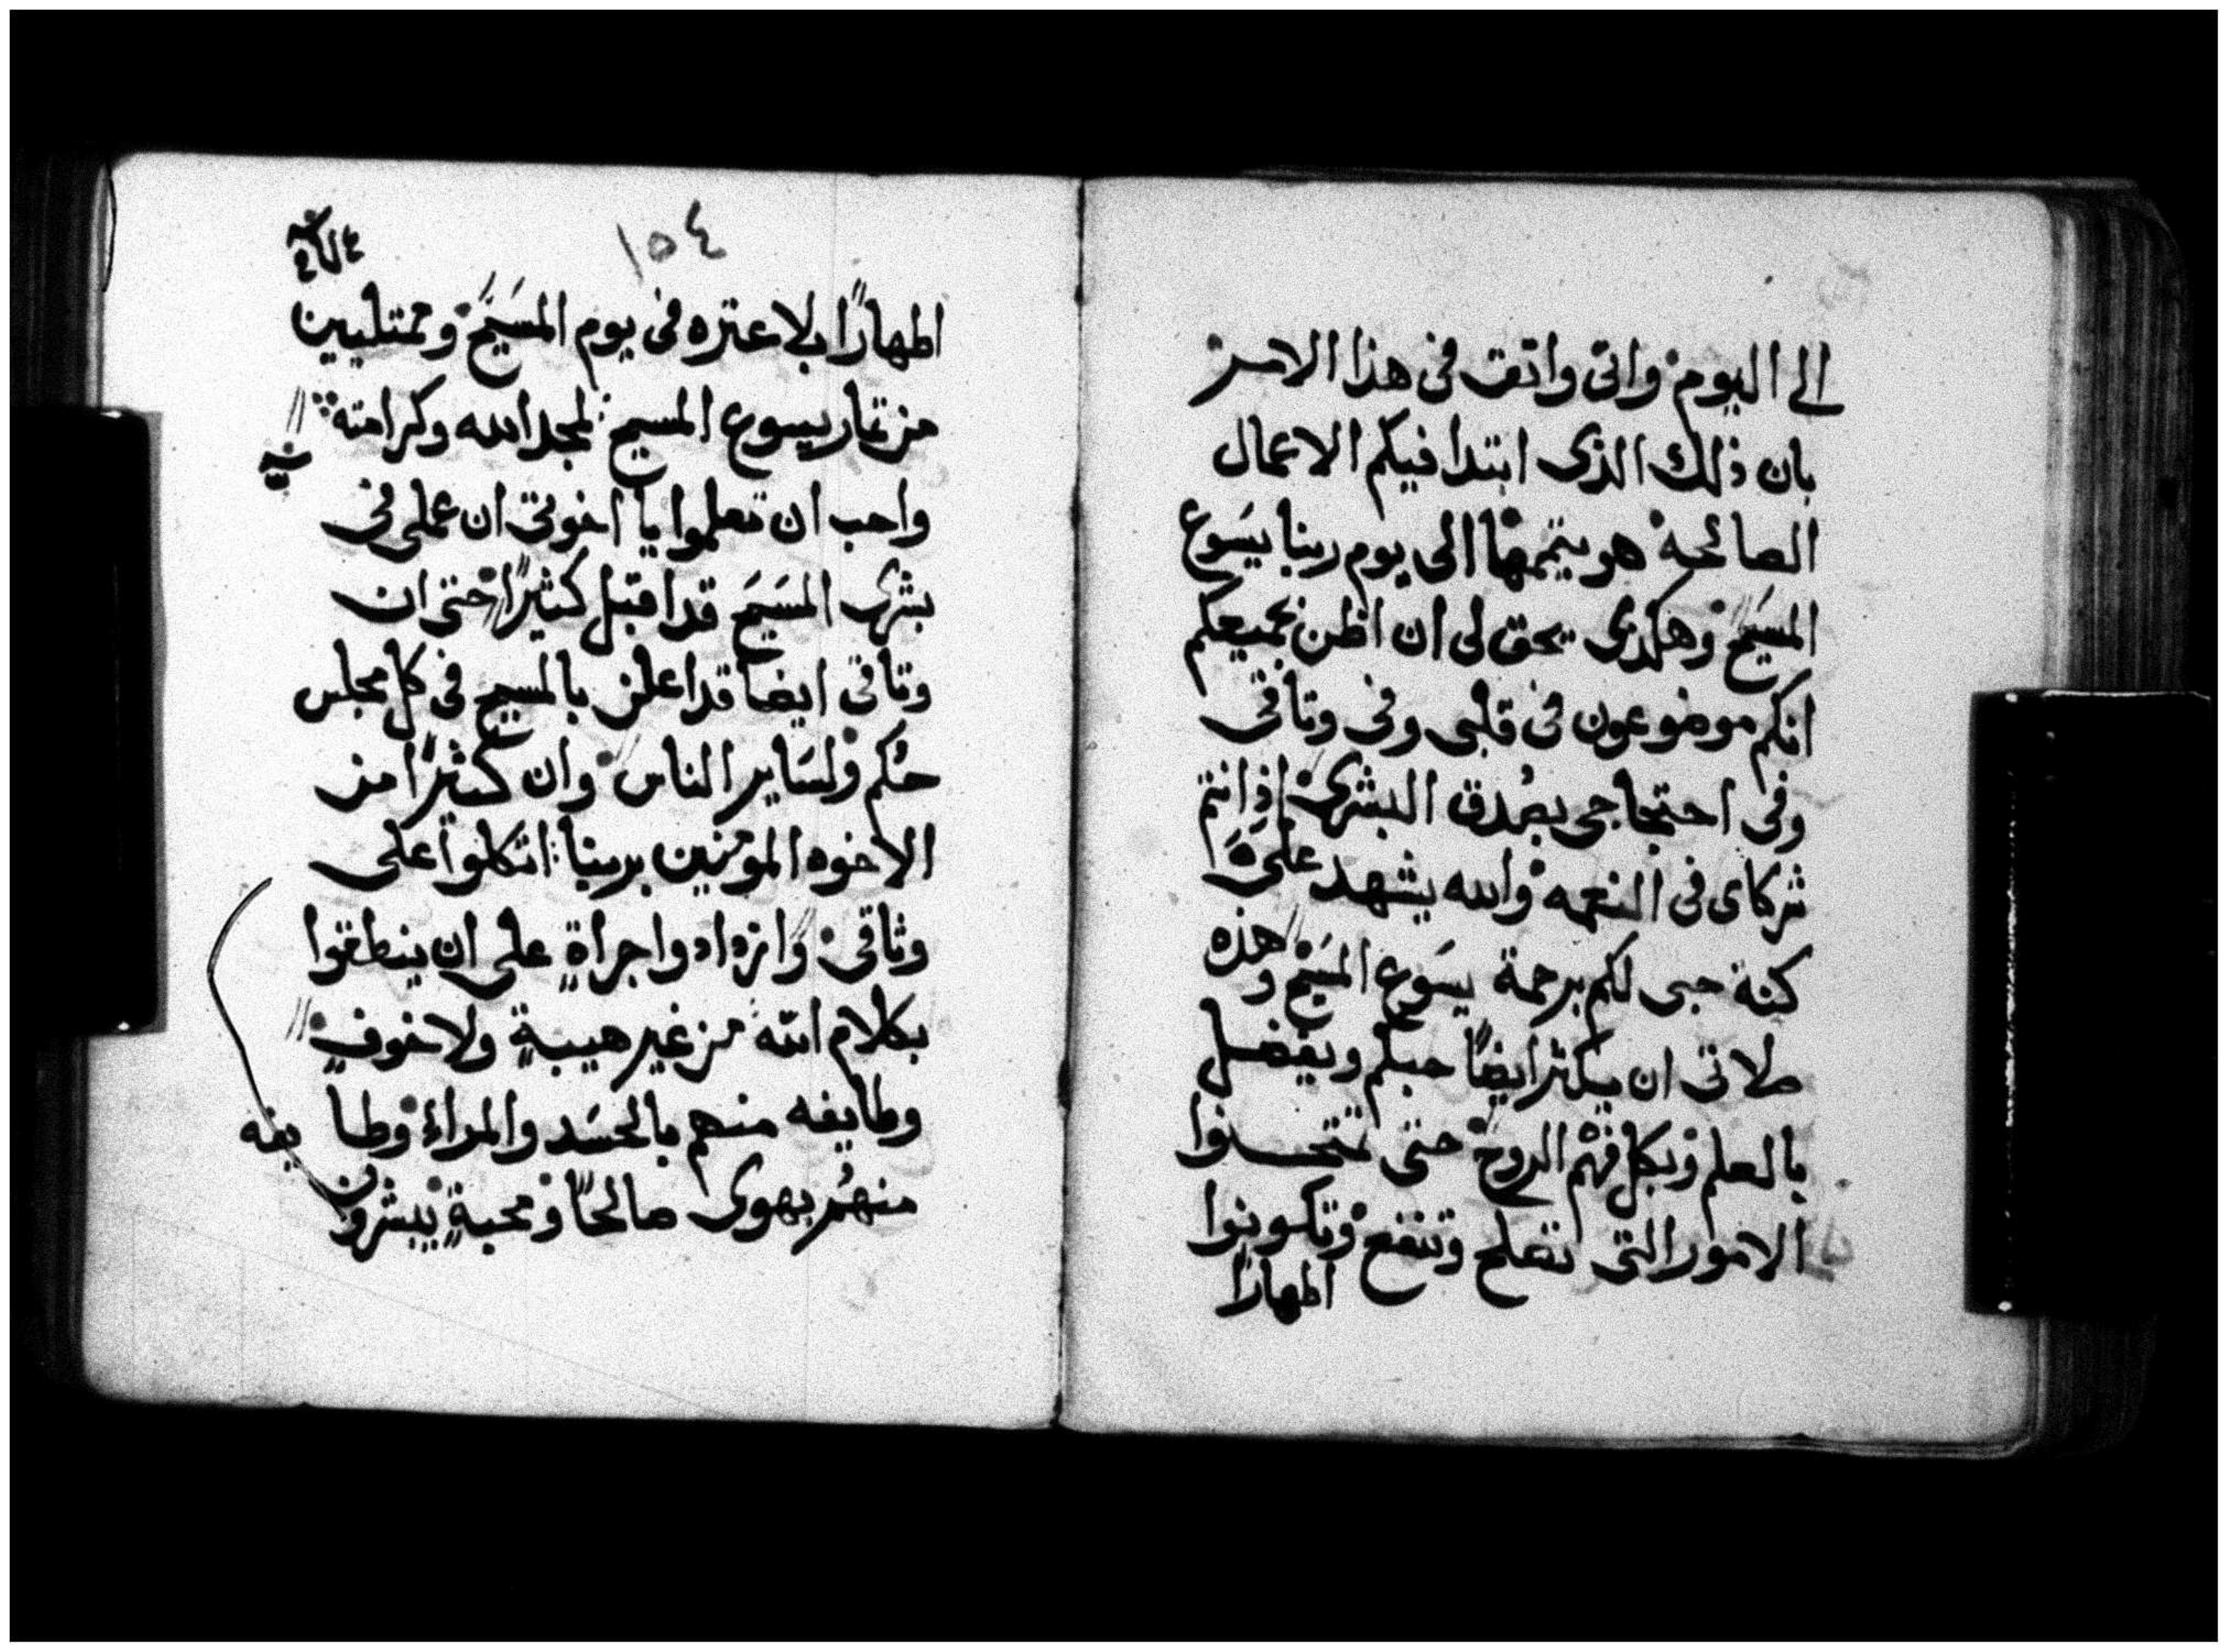 الى اليوم واني واثق في هذا الامر
بان ذلك الذى ابتدا فيكم الاعمال
الصالحه هو يتممها الى يوم ربنا يسَوع
المسَيح وهكذى يحق لى ان اظن بجميعكم
انكم موضوعون فى قلبى وفى وثاقى
وفى احتجاجى بصُدق البشرى اذ انتم
شركاى فى النعمه والله يشهد علىَّ
كنة حبى لكم برحمة يسَوع المسَيح وهذه
صلاتى ان يكثر ايضًا حبكم ويفضل
بالعلم وبكل فهْم الروح حتى تمتحنوا
الامور التى تصلح وتنفع وتكونوا
اطهارًا
١٥٤
اطهارًا بلا عتره فى يوم المسَيح وممتليين
من ثمار يسوع المسيح لمجد الله وكرامته
واجب ان تعلموا يا اخوتى ان عملى فى
بشرى المسَيحَ قد اقبل كثيرًا حتى ان
وثاقى ايضا قد اعلن بالمسيح فى كل مجلس
حُكم ولسَاير الناس وان كثيرًا من
الاخوه المومنين بربنا اتكلوا على
وثاقى وازدادوا جراةٍ على ان ينطقوا
بكلام الله من غير هيبةٍ ولا خوفٍ
وطايفه منهم بالحسَد والمراء وطايفه
منهُم بهوى صالحًا ومحبةٍ يبشرون